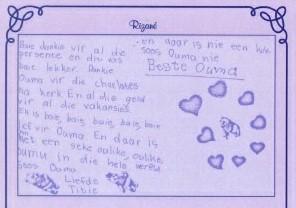 Rizané
Baie dankie vir al die
persente en dit was
baie lekker. Dankie
Ouma vir die charlotes
na kerk En al die geld
vir al die vakansies
En is baie, baie, baie, baie, baie
lief vir Ouma En daar is
net een seke oulike, oulike
oumu in die hele wereld
soos Ouma
Liefde
Titie
en daar is nie een
soos Ouma nie
Beste Ouma